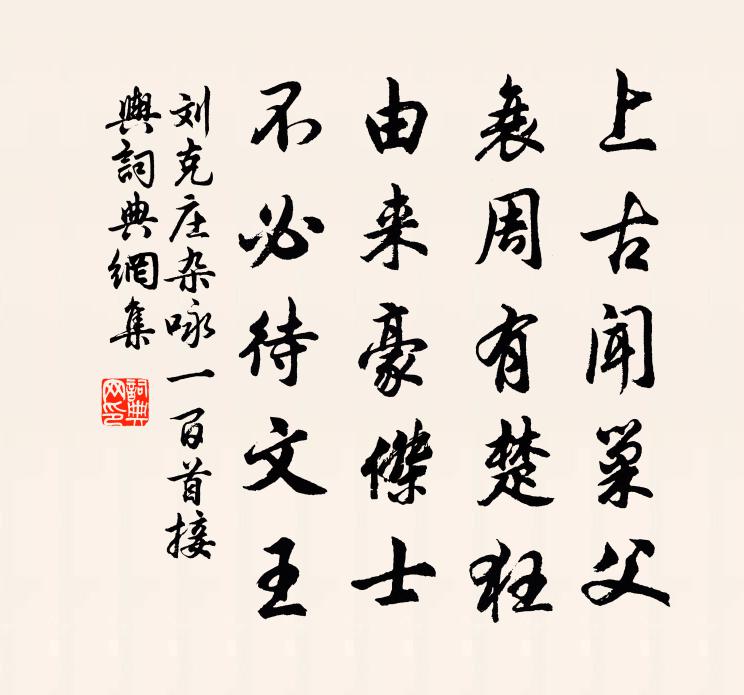 上古闻巢父
衰周有楚狂
由来豪傑士
不必待文王
刘克庄杂咏一百首接
舆詞典網集
詞典网印